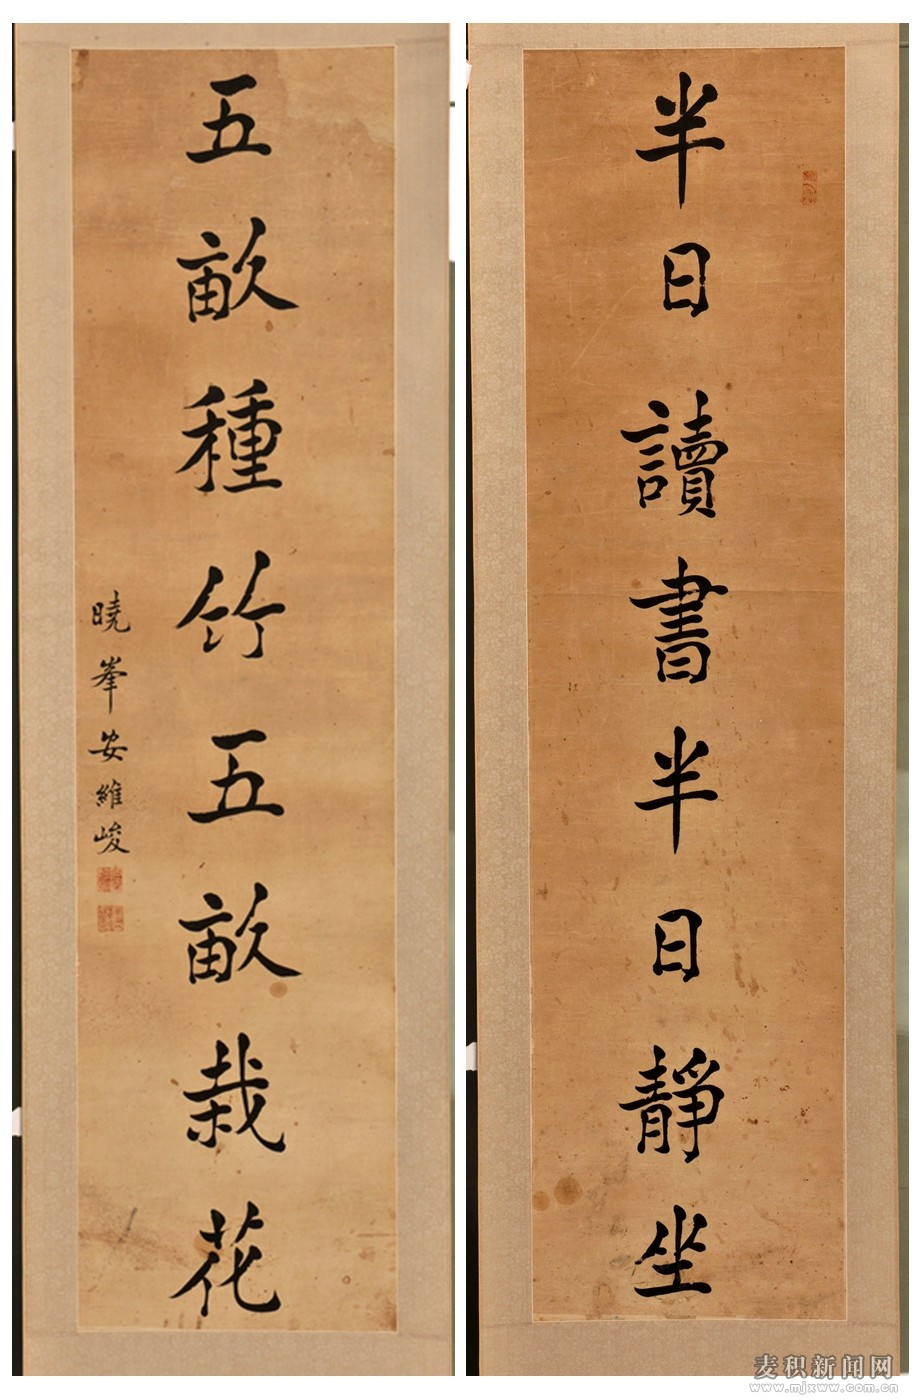 半日讀書半日靜坐
五畝種竹五畝栽花
曉峯安維峻
麦积新闻网
www.mjxww.com.cn